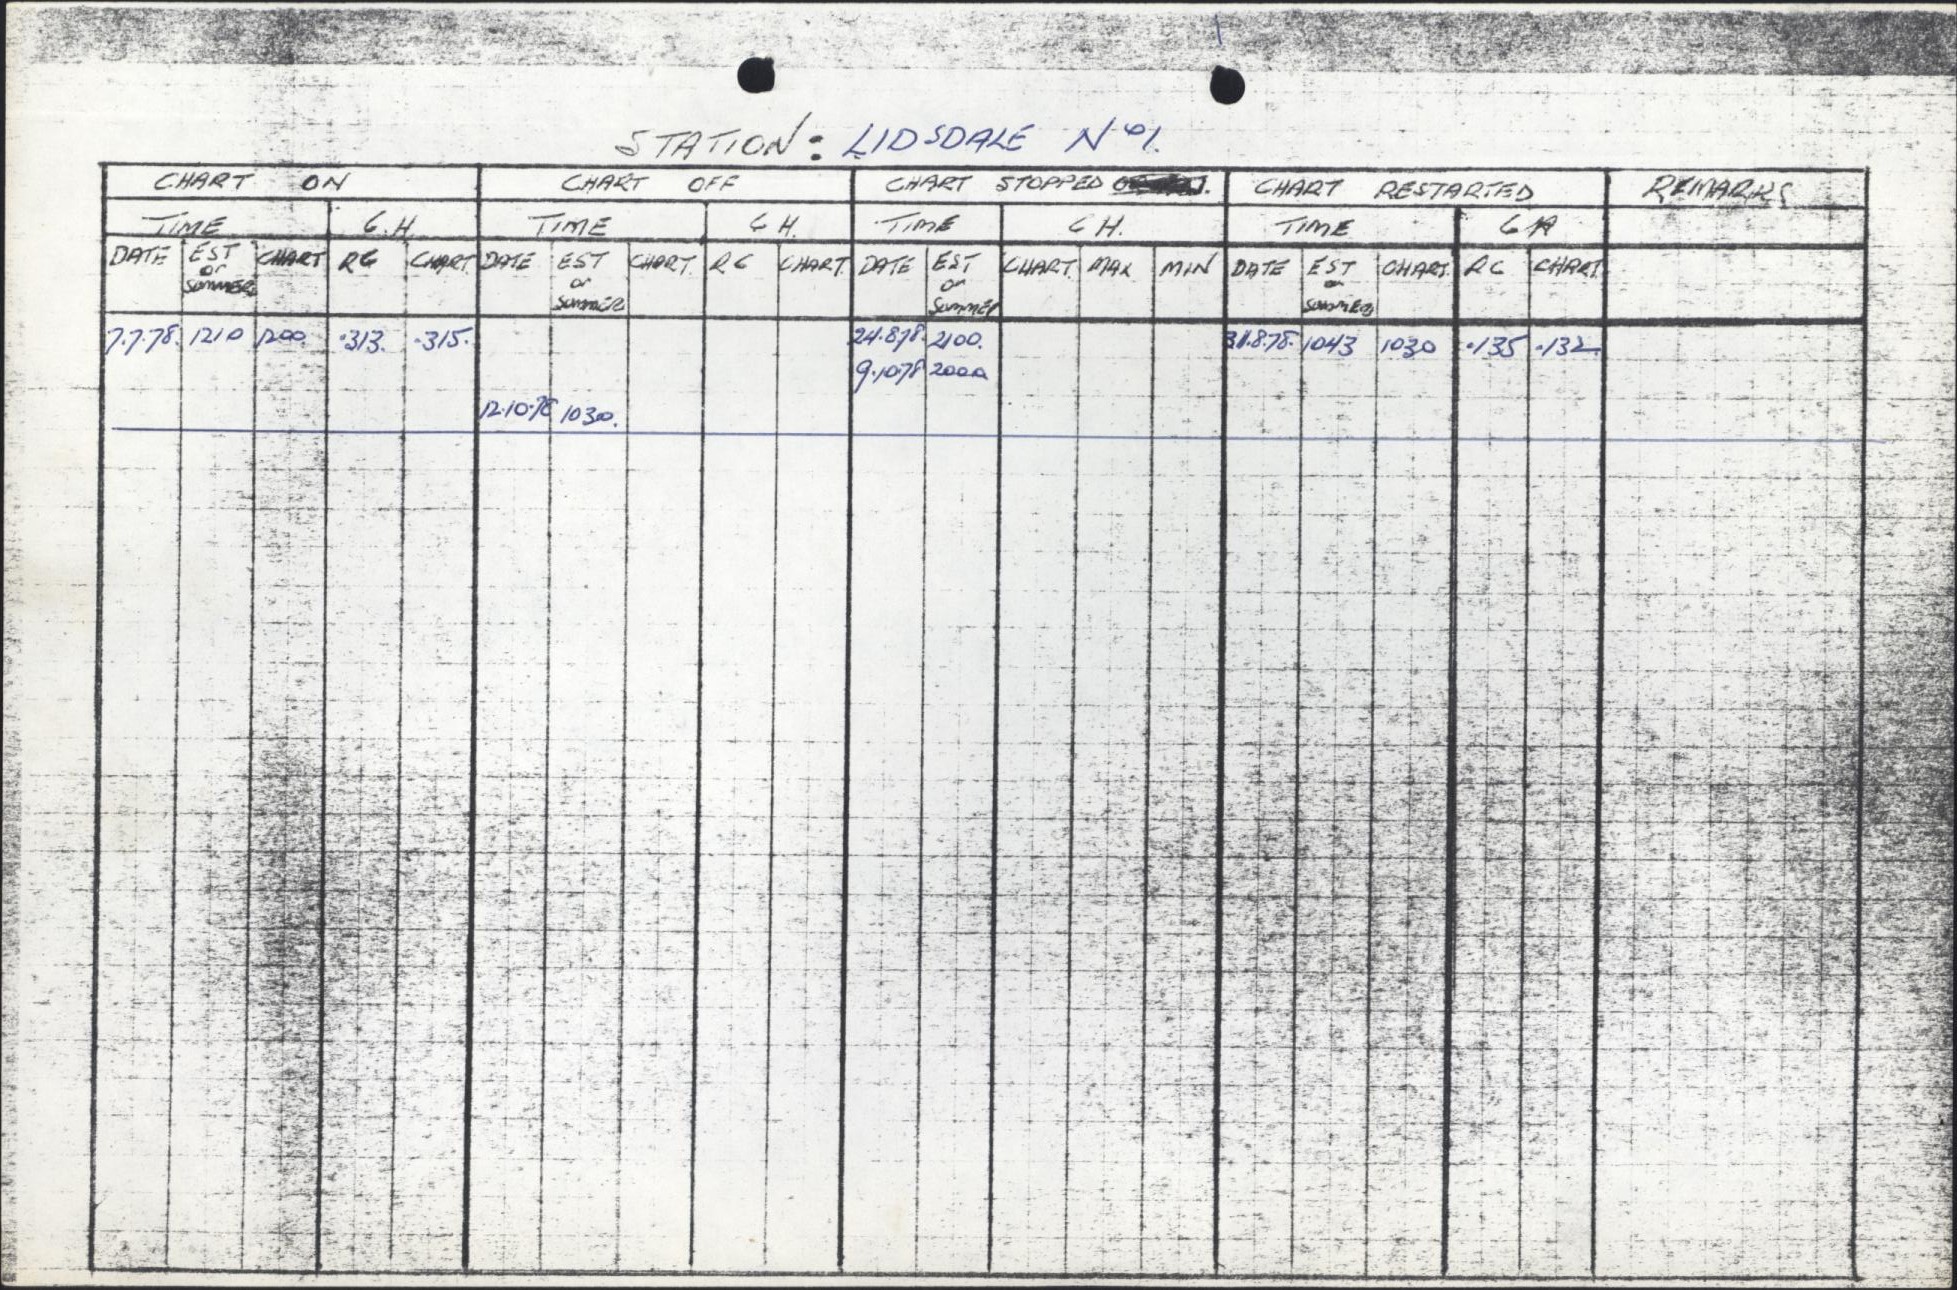 STATION: LIDSDALE Nº1.
CHART ON CHART OFF CHART STOPPED CHART RESTARTED REMARKS
TIME G.H. TIME G.H. TIME G.H. TIME G.H
DATE EST or SUMMER CHART RG CHART DATE EST or SUMMER CHART RG CHART DATE EST or SUMMER CHART MAX MIN DATE EST or SUMMER CHART RG CHART
7.7.78. 1210 1200. .313. .315. 24.8.78. 2100. 31.8.78. 1043 1030 .135 .132.
9.10.78 2000
12.10.78 1030.